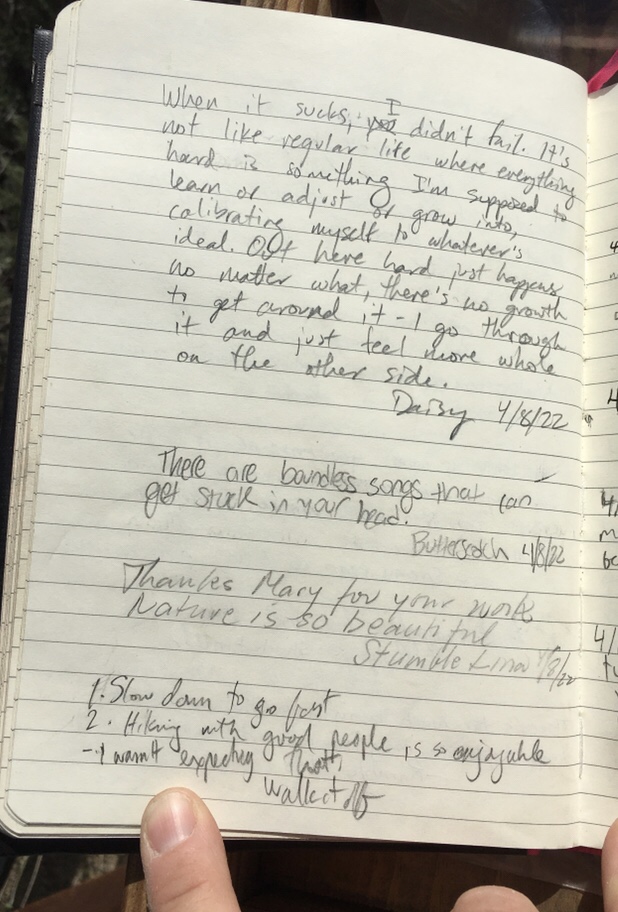 When it sucks, I didn't fail. It's
not like regular life where everything
hard is something I'm supposed to
learn or adjust or grow into,
calibrating myself to whatever's
ideal. Out here hard just happens
no matter what, there's no growth
to get around it - I go through
it and just feel more whole
on the other side.
Daisy 4/8/22
There are boundless songs that can
get stuck in your head.
Butterscotch 4/8/22
Thanks Mary for your work
Nature is so beautiful
Stumble Lina /8/22
1. Slow down to go fast
2. Hiking with good people is so enjoyable
- I wasn't expecting that
Walkitoff
4
4
4/
m
be
4/